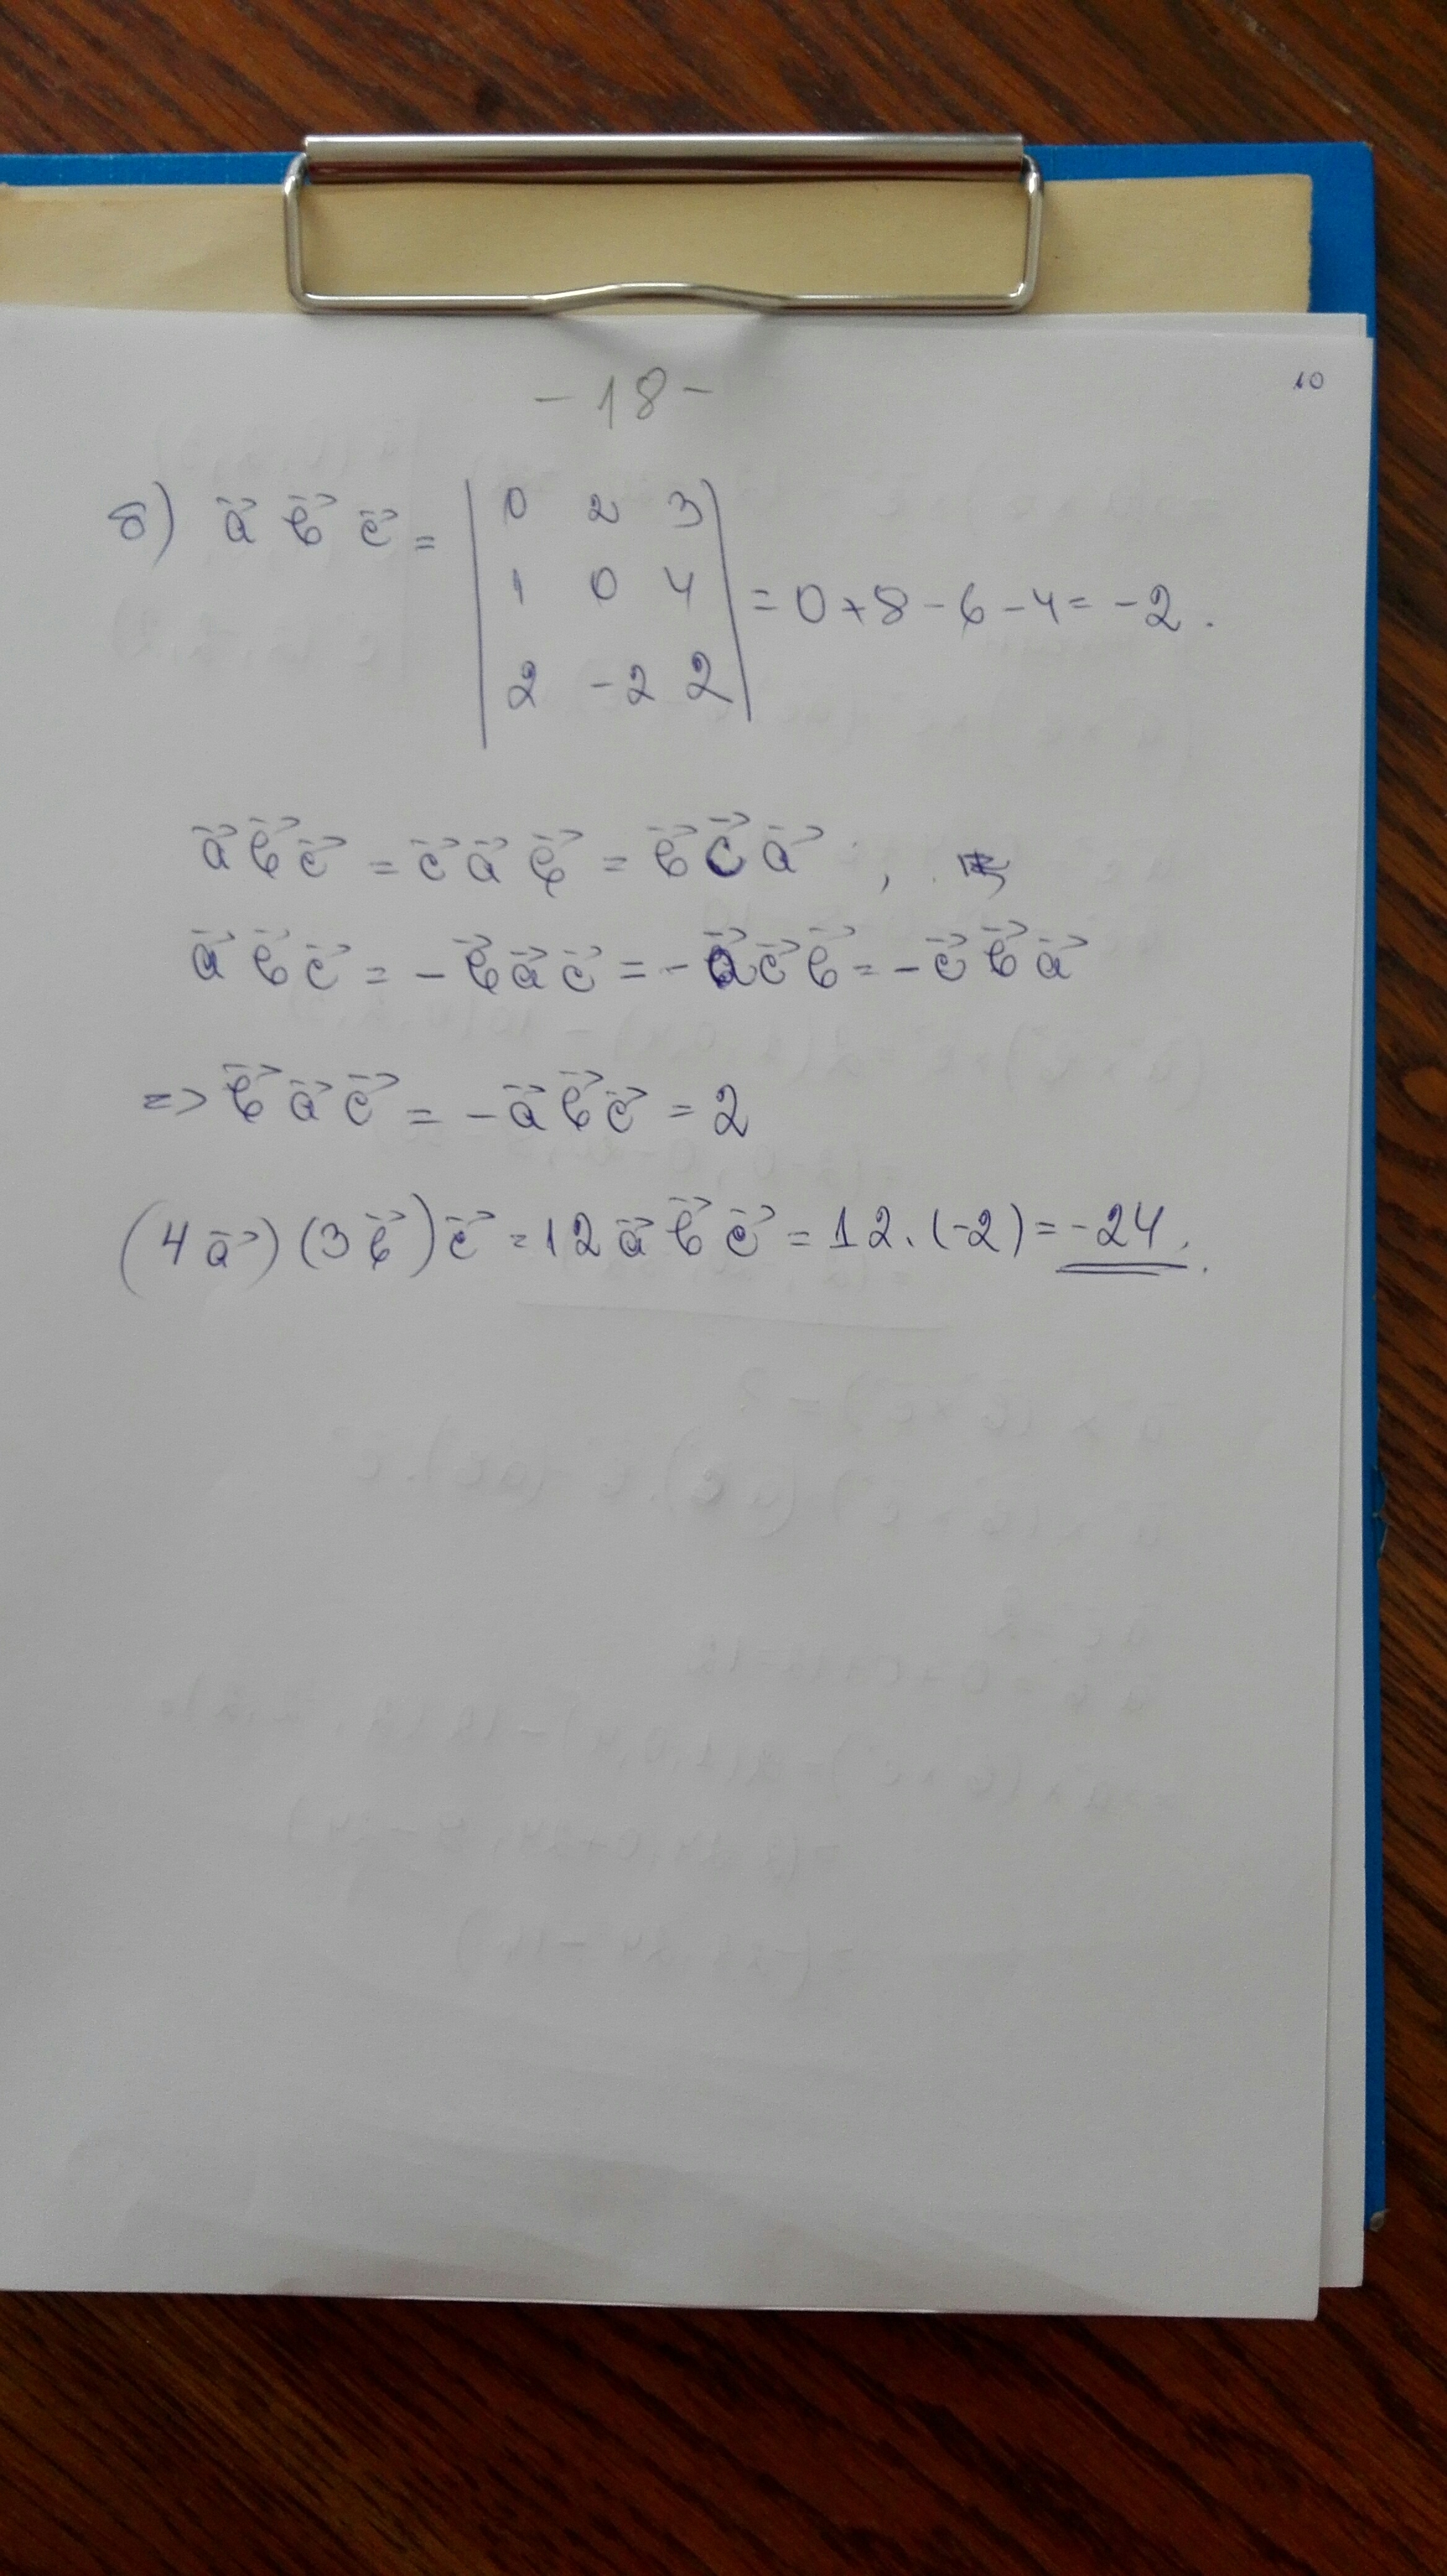 -18-
10
б) a⃗ b⃗ c⃗ = | 0 2 3 |
| 1 0 4 | = 0+8-6-4= -2.
| 2 -2 2 |
a⃗ b⃗ c⃗ = c⃗ a⃗ b⃗ = b⃗ c⃗ a⃗ ,
a⃗ b⃗ c⃗ = - b⃗ a⃗ c⃗ = - a⃗ c⃗ b⃗ = - c⃗ b⃗ a⃗
=> b⃗ a⃗ c⃗ = - a⃗ b⃗ c⃗ = 2
(4 a⃗) (3 b⃗) c⃗ = 12 a⃗ b⃗ c⃗ = 12. (-2) = -24.